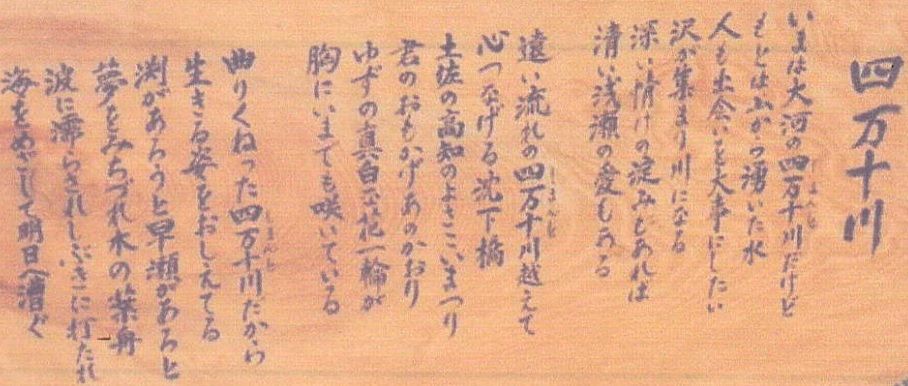 四万十川
いまは大河の四万十川だけど
しまんと
もとは山から湧いた水
人も出会いを大事にしたい
沢が集まり川になる
深い情けの淀みもあれば
清い浅瀬の愛もある
遠い流れの四万十川越えて
しまんと
心つなげる沈下橋
土佐の高知のよさこいまつり
君のおもかげあのかおり
ゆずの真白な花一輪が
胸にいまでも咲いている
曲りくねった四万十川だから
しまんと
生きる姿をおしえてる
渕があろうと早瀬があろと
夢をみちづれ木の葉舟
波に濡らされしぶきに打たれ
海をめざして明日へ漕ぐ